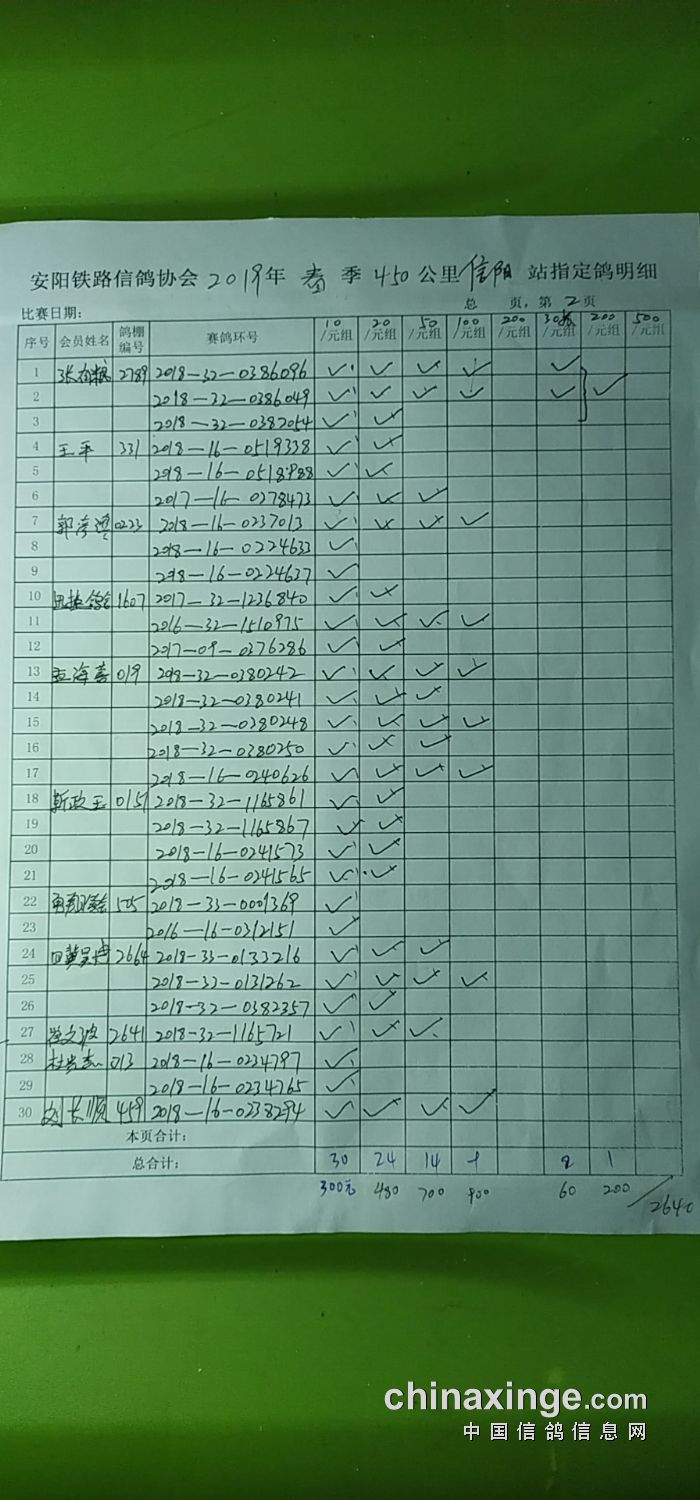 安阳铁路信鸽协会 2019年 春 季 450 公里 信阳 站指定鸽明细
比赛日期: 总 页, 第 2 页
序号 会员姓名 鸽棚编号 赛鸽环号 10/元组 20/元组 50/元组 100/元组 200/元组 30/元组 200/元组 500/元组
1 2789 2018-32-0386096 ✓ ✓ ✓ ✓ ✓
2 2018-32-0386049 ✓ ✓ ✓ ✓ ✓ ✓
3 2018-32-0382054 ✓ ✓
4 王平 331 2018-16-0519338 ✓ ✓
5 2018-16-0518988 ✓ ✓
6 2017-16-0278473 ✓ ✓ ✓
7 0223 2018-16-0237013 ✓ ✓ ✓ ✓
8 2018-16-0224633 ✓
9 2018-16-0224637 ✓
10 1607 2017-32-1236840 ✓ ✓
11 2016-32-1510975 ✓ ✓ ✓ ✓
12 2017-09-0376286 ✓ ✓
13 孟海喜 019 2018-32-0380242 ✓ ✓ ✓ ✓
14 2018-32-0380241 ✓ ✓ ✓
15 2018-32-0380248 ✓ ✓ ✓ ✓
16 2018-32-0380250 ✓ ✓ ✓
17 2018-16-0240626 ✓ ✓ ✓ ✓
18 靳政玉 0151 2018-32-1165861 ✓ ✓
19 2018-32-1165867 ✓ ✓
20 2018-16-0241573 ✓ ✓
21 2018-16-0241565 ✓ ✓
22 505 2018-33-0001369 ✓
23 2016-16-0312151 ✓
24 2664 2018-33-0133216 ✓ ✓ ✓
25 2018-33-0131262 ✓ ✓ ✓ ✓
26 2018-32-0382357 ✓ ✓
27 2641 2018-32-1165721 ✓ ✓ ✓
28 013 2018-16-0234797 ✓
29 2018-16-0234765 ✓
30 刘长顺 459 2018-16-0238294 ✓ ✓ ✓ ✓
本页合计:
总合计: 30 24 14 2 1
300元 480 700 900 60 200 2640
chinaxinge.com
中国信鸽信息网